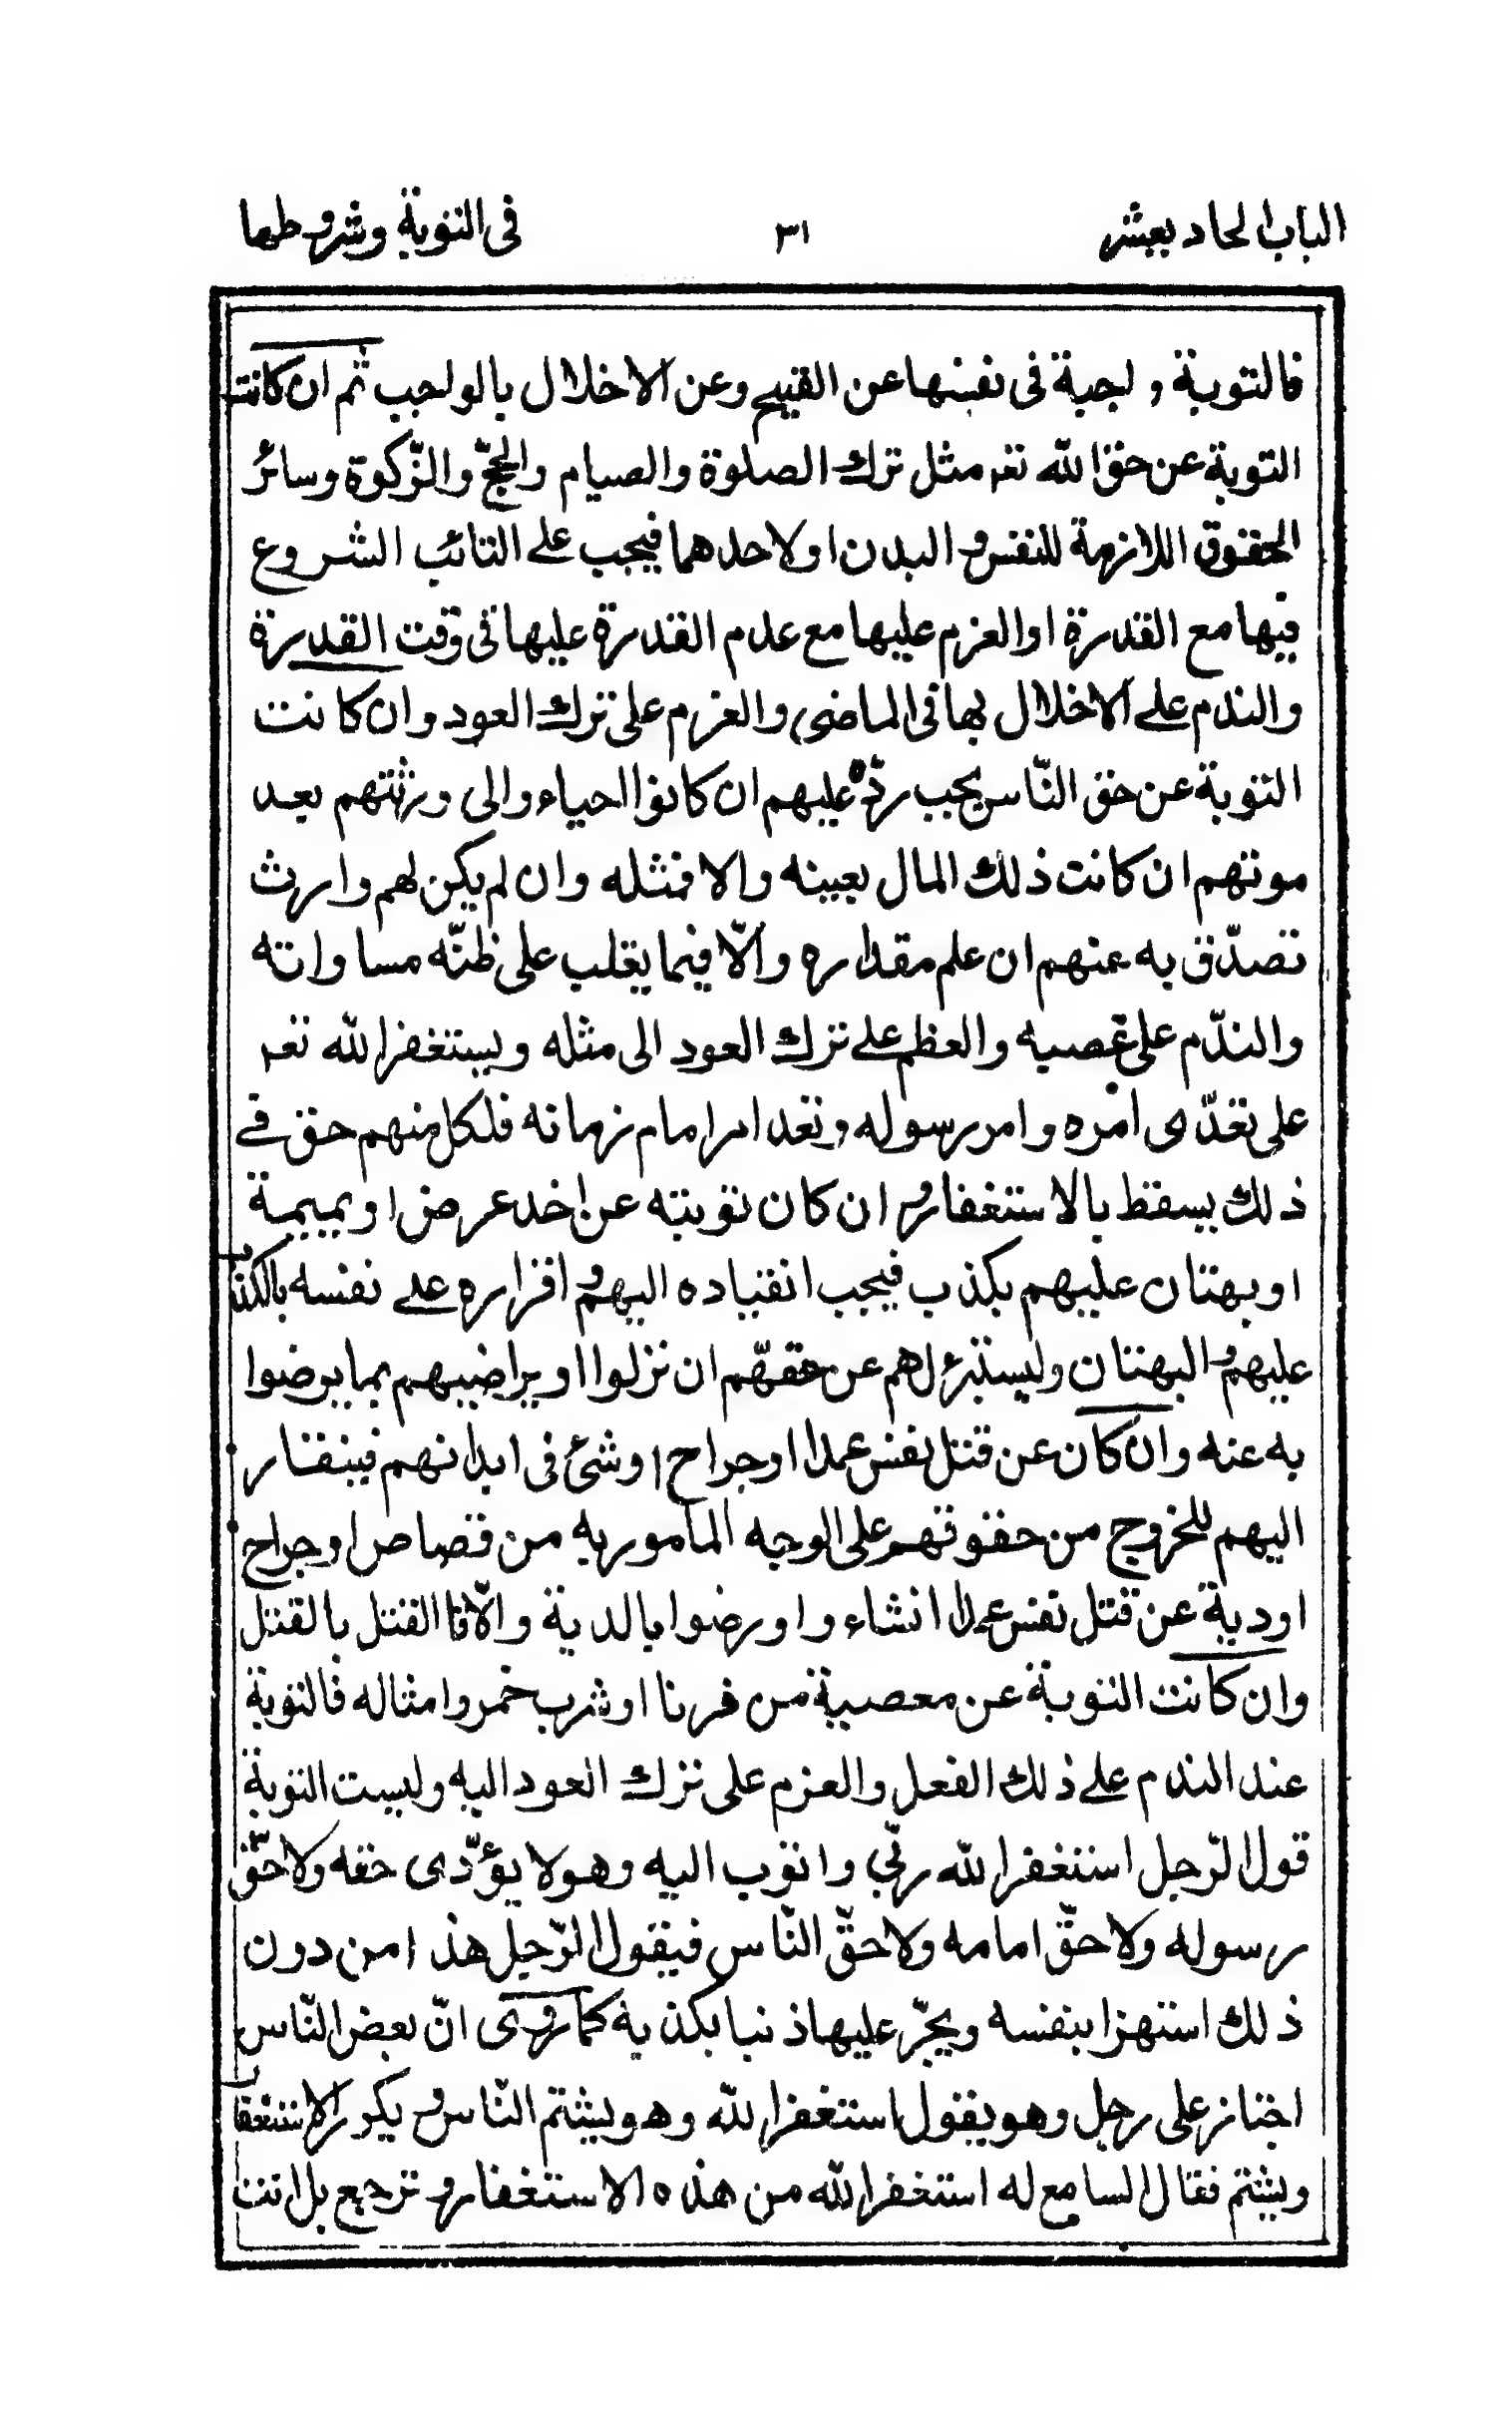 الباب الحاد يعشر ٣١ فى التوبة وشروطها
فالتوبة واجبة فى نفسها عن القبيح وعن الاخلال بالواجب ثم ان كانت
التوبة عن حق الله تعـ مثل ترك الصلوة والصيام والحجّ والزّكوة وسائر
الحقوق اللازمة للنفس و البدن او لاحدهما فيجب على التائب الشروع
فيها مع القدرة او العزم عليها مع عدم القدرة عليها فى وقت القدرة
والندم على الاخلال بها فى الماضى والعزم على ترك العود وان كانت
التوبة عن حق النّاس يجب ردّه عليهم ان كانوا احياء والى ورثتهم بعد
موتهم ان كانت ذلك المال بعينه والا فمثله وان لم يكن لهم وارث
تصدّق به عنهم ان علم مقداره والّا فيما يغلب على ظنّه مساواته
والندّم على غصبه والعظم على ترك العود الى مثله ويستغفر الله تعـ
على تعدّى امره وامر رسوله وتعد امر امام زمانه فلكل منهم حق فى
ذلك يسقط بالاستغفار و ان كان توبته عن اخد عرض او نميمة
او بهتان عليهم بكذب فيجب انقياده اليهم و اقراره على نفسه بالكذب
عليهم و البهتان وليستبرئ لهم عن حقهّم ان نزلوا او يراضيهم بما يرضوا
به عنه وان كان عن قتل نفس عمدا او جراح او شئ فى ابدانهم فينقار
اليهم للخروج من حقوقهم على الوجه المأموربه من قصاص او جراح
اودية عن قتل نفس عمدا انشاء وا و رضوا بالدية والّا فا القتل بالقتل
وان كانت التوبة عن معصية من فرنا او شرب خمر وامثاله فالتوبة
عند الندم على ذلك الفعل والعزم على ترك العود اليه وليست التوبة
قول الرّجل استغفر الله ربّى واتوب اليه وهو لا يؤدّى حقه ولا حقّ
رسوله ولا حقّ امامه ولا حقّ النّاس فيقول الرّجل هذا من دون
ذلك استهزا بنفسه ويجرّ عليها ذنبا بكذبه كما روى انّ بعض النّاس
اجتاز على رجل وهو يقول استغفر الله وهو يشتم النّاس و يكرر الاستغفار
ويشتم فقال السامع له استغفر الله من هذه الاستغفار و ترجع بل انت